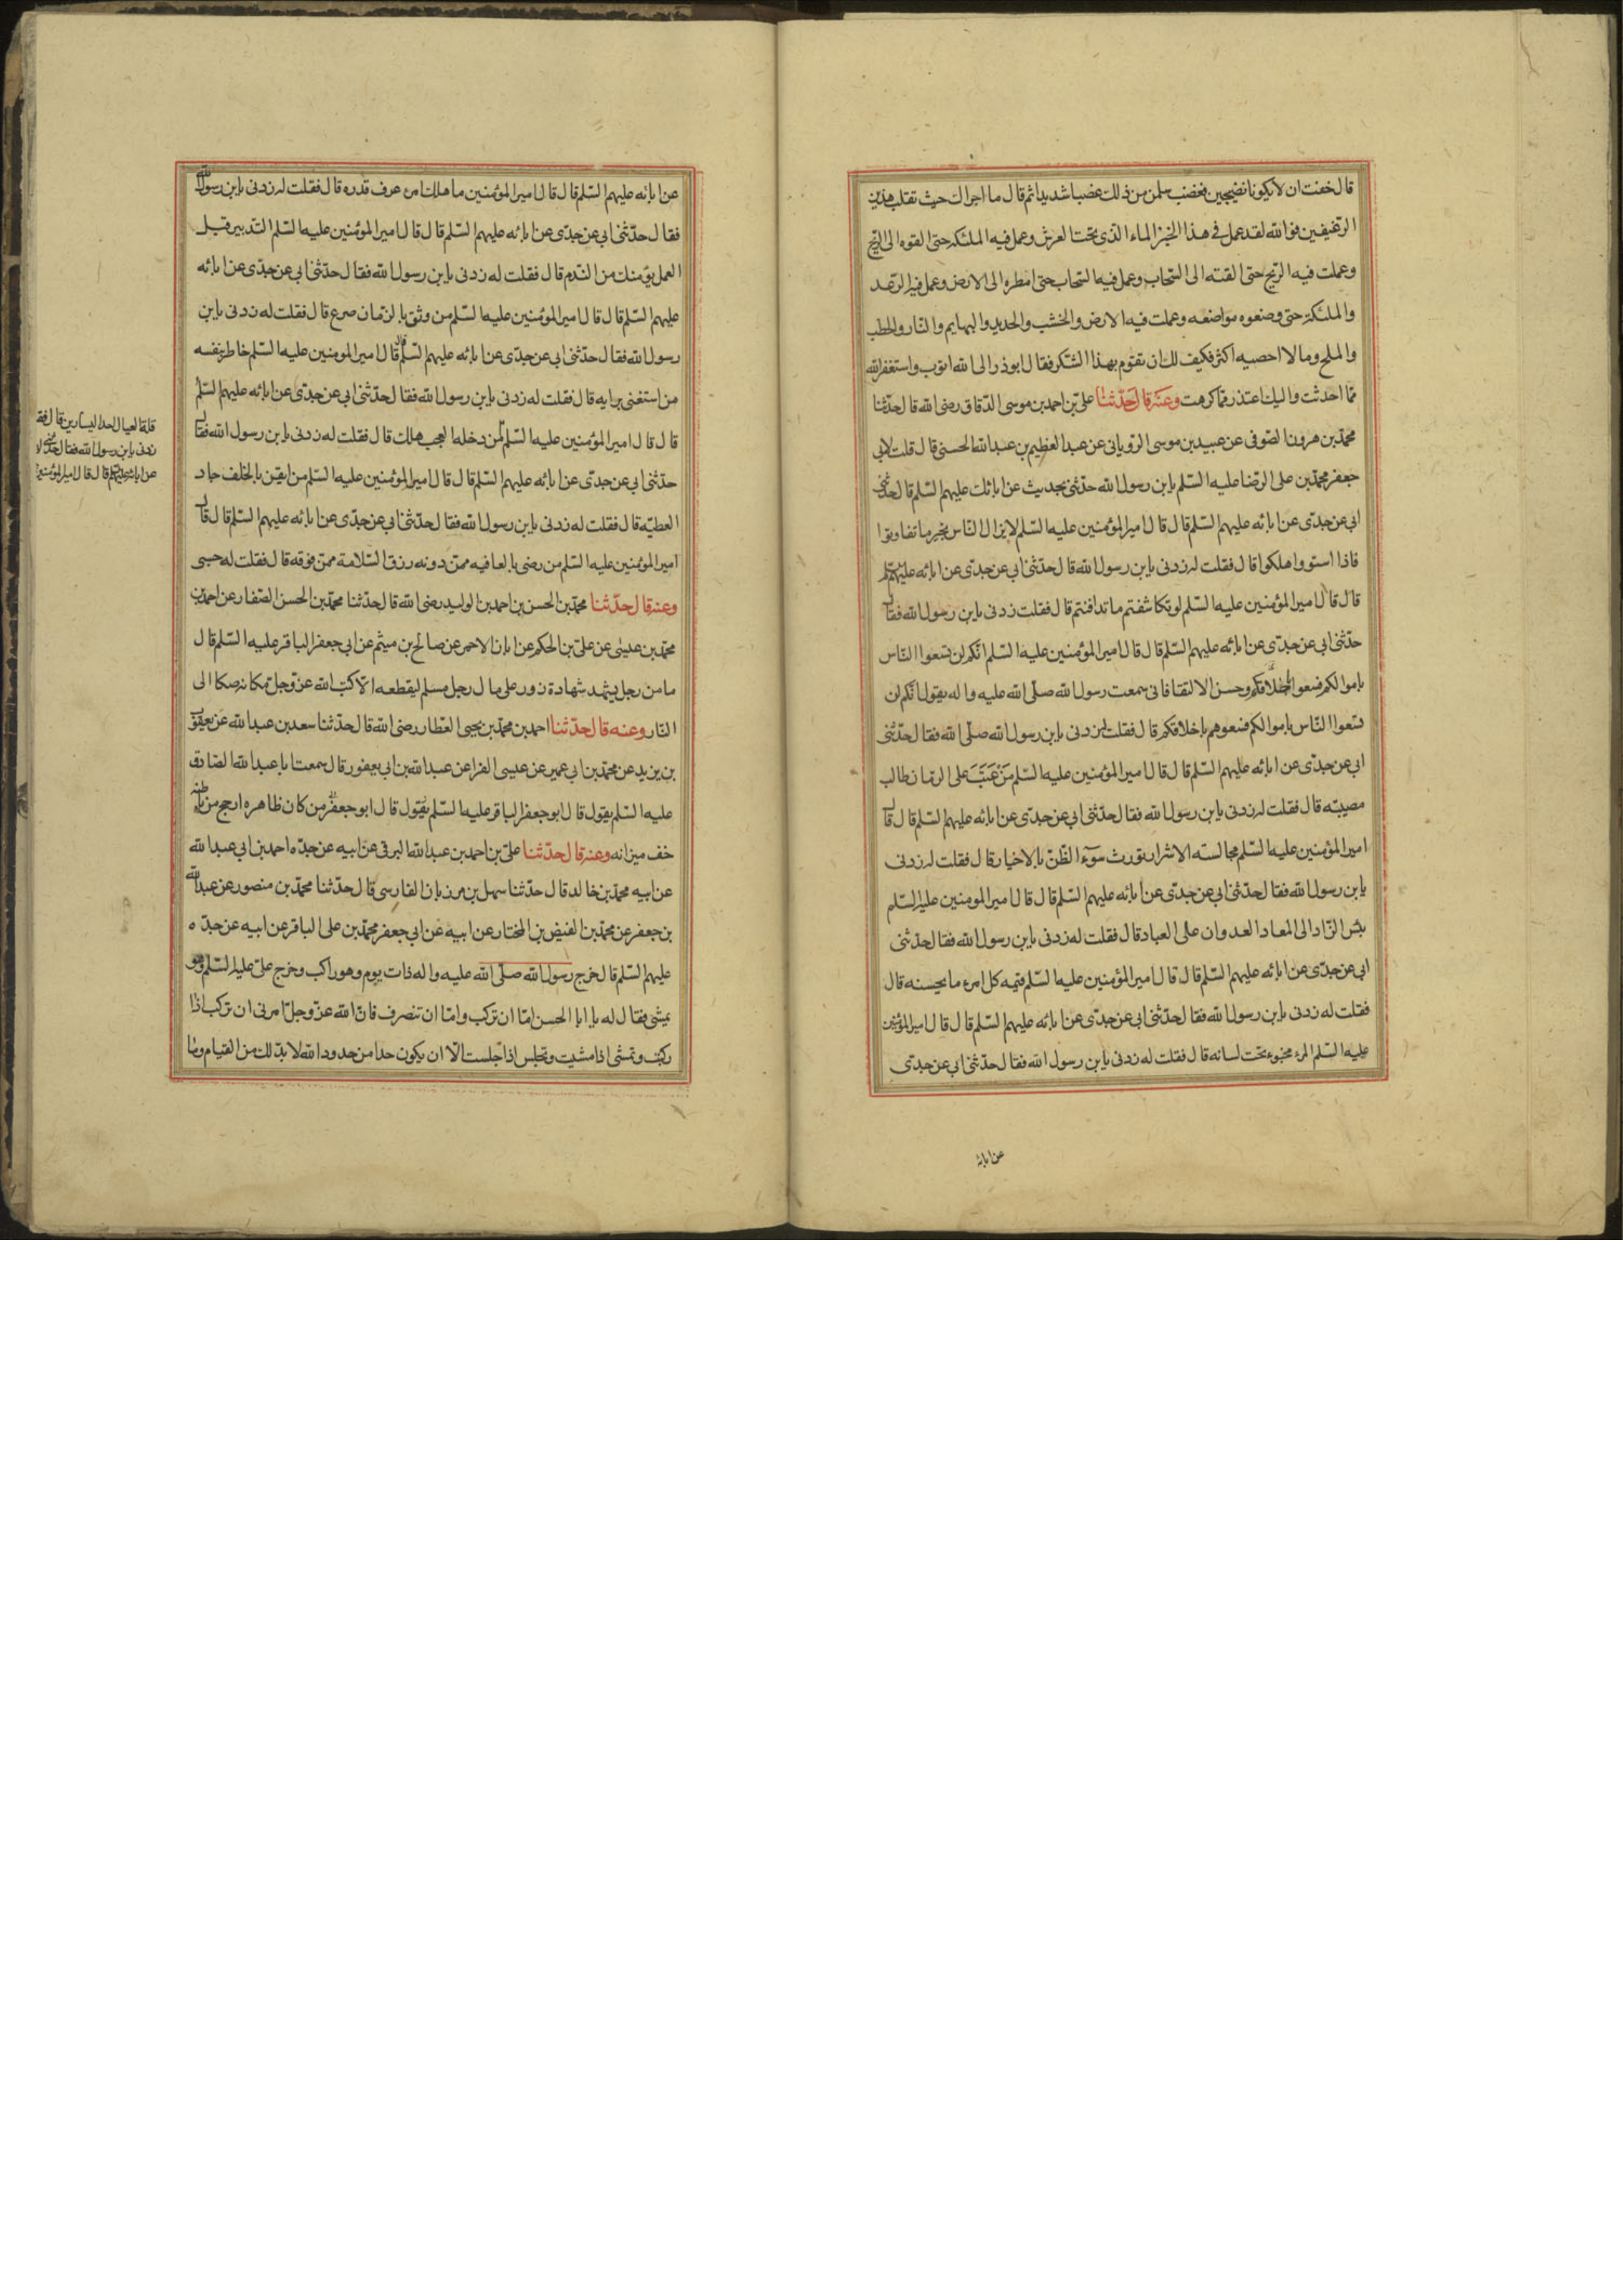 قال خفت ان لا يكونا نضيجين فغضب سلمن من ذلك غضبا شديدا ثم قال ما اجراك حيث تقلب هذين
الرغيفين فوالله لقد عمل فى هذا الخبز الماء الذى تحت العرش وعمل فيه الملئكه حتى القوه الى الريح
وعملت فيه الريح حتى القته الى السحاب وعمل فيه السحاب حتى امطره الى الارض وعمل فيه الرعد
والملئكة حتى وضعوه مواضعه وعملت فيه الارض والخشب والحديد والبهايم والنار والحطب
والملح وما لا احصيه اكثر فكيف لك ان تقوم بهذا الشكر فقال ابوذر الى الله اتوب واستغفر الله
مما احدثت واليك اعتذر مما كرهت وعنه قال حدثنا على بن احمد بن موسى الدقاق رضى الله قال حدثنا
محمد بن هرون الصوفى عن عبيد بن موسى الرويانى عن عبد العظيم بن عبد الله الحسنى قال قلت لابى
جعفر محمد بن على الرضا عليه السلم يابن رسول الله حدثنى بحديث عن ابائك عليهم السلم قال حدثنى
ابى عن جدى عن ابائه عليهم السلم قال قال امير المؤمنين عليه السلم لا يزال الناس بخير ما تفاوتوا
فاذا استووا هلكوا قال فقلت له زدنى يابن رسول الله قال حدثنى ابى عن جدى عن ابائه عليهم السلم
قال قال امير المؤمنين عليه السلم لو تكاشفتم ما تدافنتم قال فقلت زدنى يابن رسول الله فقال
حدثنى ابى عن جدى عن ابائه عليهم السلم قال قال امير المؤمنين عليه السلم انكم لن تسعوا الناس
باموالكم فسعوا باخلاقكم وحسن الالتقا فانى سمعت رسول الله صلى الله عليه واله يقول انكم لن
تسعوا الناس باموالكم فسعوهم باخلاقكم قال فقلت له زدنى يابن رسول الله صلى الله فقال حدثنى
ابى عن جدى عن ابائه عليهم السلم قال قال امير المؤمنين عليه السلم من عتب على الزمان طالب
معيبته قال فقلت له زدنى يابن رسول الله فقال حدثنى ابى عن جدى عن ابائه عليهم السلم قال قال
امير المؤمنين عليه السلم مجالسته الاشرار تورث سوء الظن بالاخيار قال فقلت له زدنى
يابن رسول الله فقال حدثنى ابى عن جدى عن ابائه عليهم السلم قال قال امير المومنين عليه السلم
بئس الزاد الى المعاد العدوان على العباد قال فقلت له زدنى يابن رسول الله فقال حدثنى
ابى عن جدى عن ابائه عليهم السلم قال قال امير المؤمنين عليه السلم قيمه كل امرء ما يحسنه قال
فقلت له زدنى يابن رسول الله فقال حدثنى ابى عن جدى عن ابائه عليهم السلم قال قال امير المؤمنين
عليه السلم المرء مخبوء تحت لسانه قال فقلت له زدنى يابن رسول الله فقال حدثنى ابى عن جدى
عن ابائه
عن ابائه عليهم السلم قال قال امير المؤمنين ما هلك امرء عرف قدره قال فقلت له زدنى يابن رسول الله
فقال حدثنى ابى عن جدى عن ابائه عليهم السلم قال قال امير المؤمنين عليه السلم التدبير قبل
العمل يؤمنك من الندم قال فقلت له زدنى يابن رسول الله فقال حدثنى ابى عن جدى عن ابائه
عليهم السلم قال قال امير المؤمنين عليه السلم من وثق بالزمان صرع قال فقلت له زدنى يابن
رسول الله فقال حدثنى ابى عن جدى عن ابائه عليهم السلم قال قال امير المومنين عليه السلم خاطر بنفسه
من استغنى برايه قال فقلت له زدنى يابن رسول الله فقال حدثنى ابى عن جدى عن ابائه عليهم السلم
قال قال امير المؤمنين عليه السلم من دخله العجب هلك قال فقلت له زدنى يابن رسول الله فقال
حدثنى ابى عن جدى عن ابائه عليهم السلم قال قال امير المؤمنين عليه السلم من ايقن بالخلف جاد
العطيه قال فقلت له زدنى يابن رسول الله فقال حدثنى ابى عن جدى عن ابائه عليهم السلم قال قال
امير المؤمنين عليه السلم من رضى بالعافيه ممن دونه رزق السلامة ممن فوقه قال فقلت له حسبى
وعنه قال حدثنا محمد بن الحسن بن احمد بن الوليد رضى الله قال حدثنا محمد بن الحسن الصفار عن احمد بن
محمد بن عيسى عن على بن الحكم عن ابان الاحمر عن صالح بن ميثم عن ابى جعفر الباقر عليه السلم قال
ما من رجل يشهد شهادة زور على مال رجل مسلم ليقطعه الا كتب الله عز وجل مكانه صكا الى
النار وعنه قال حدثنا احمد بن محمد بن يحيى العطار رضى الله قال حدثنا سعد بن عبد الله عن يعقوب
بن يزيد عن محمد بن ابى عمير عن عيسى الفرا عن عبد الله بن ابى يعفور قال سمعت ابا عبد الله الصادق
عليه السلم يقول قال ابو جعفر الباقر عليه السلم يقول قال ابو جعفر من كان ظاهره ارجح من باطنه
خف ميزانه وعنه قال حدثنا على بن احمد بن عبد الله البرقى عن ابيه عن جده احمد بن ابى عبد الله
عن ابيه محمد بن خالد قال حدثنا سهل بن مرزبان الفارسى قال حدثنا محمد بن منصور عن عبد الله
بن جعفر عن محمد بن الفيض بن المختار عن ابيه عن ابى جعفر محمد بن على الباقر عن ابيه عن جده
عليهم السلم قال خرج رسول الله صلى الله عليه واله ذات يوم وهو راكب وخرج على عليه السلم وهو
يمشى فقال له يا ابا الحسن اما ان تركب واما ان تنصرف فان الله عز وجل امرنى ان تركب اذا
ركبت وتمشى اذا مشيت وتجلس اذا جلست الا ان يكون حدا من حدود الله لا بد لك من القيام وما
قلة العيال احد اليسارين قال فقلت
زدنى يابن رسول الله فقال حدثنى
عن ابائه عليهم السلم قال قال امير المؤمنين